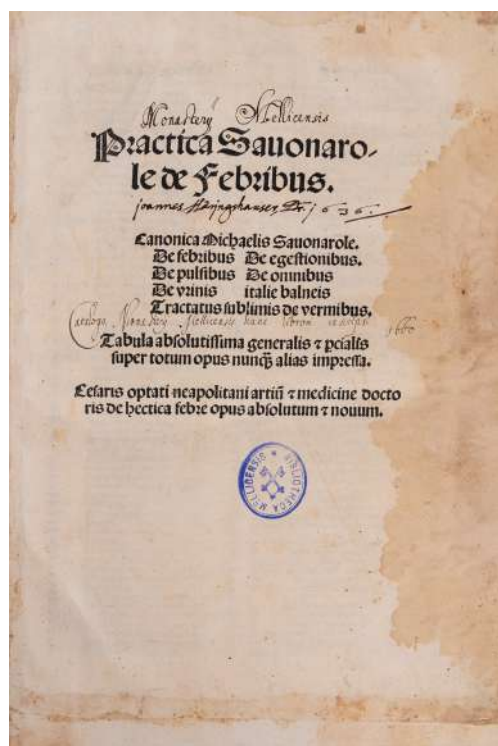 Monastery Mellicensis
Practica Sauonaro-
le de Febribus.
joannes Dr. 1636.
Canonica Michaelis Sauonarole.
De febribus De egestionibus.
De pulsibus De omnibus
De vrinis italie balneis
Tractatus sublimis de vermibus.
Catalogo Monastery Mellicensis 1660
Tabula absolutissima generalis ⁊ ꝑcialis
super totum opus nunqȝ alias impressa.
Cesaris optati neapolitani artiū ⁊ medicine docto
ris de hectica febre opus absolutum ⁊ nouum.
BIBLIOTHECA MELLICENSIS